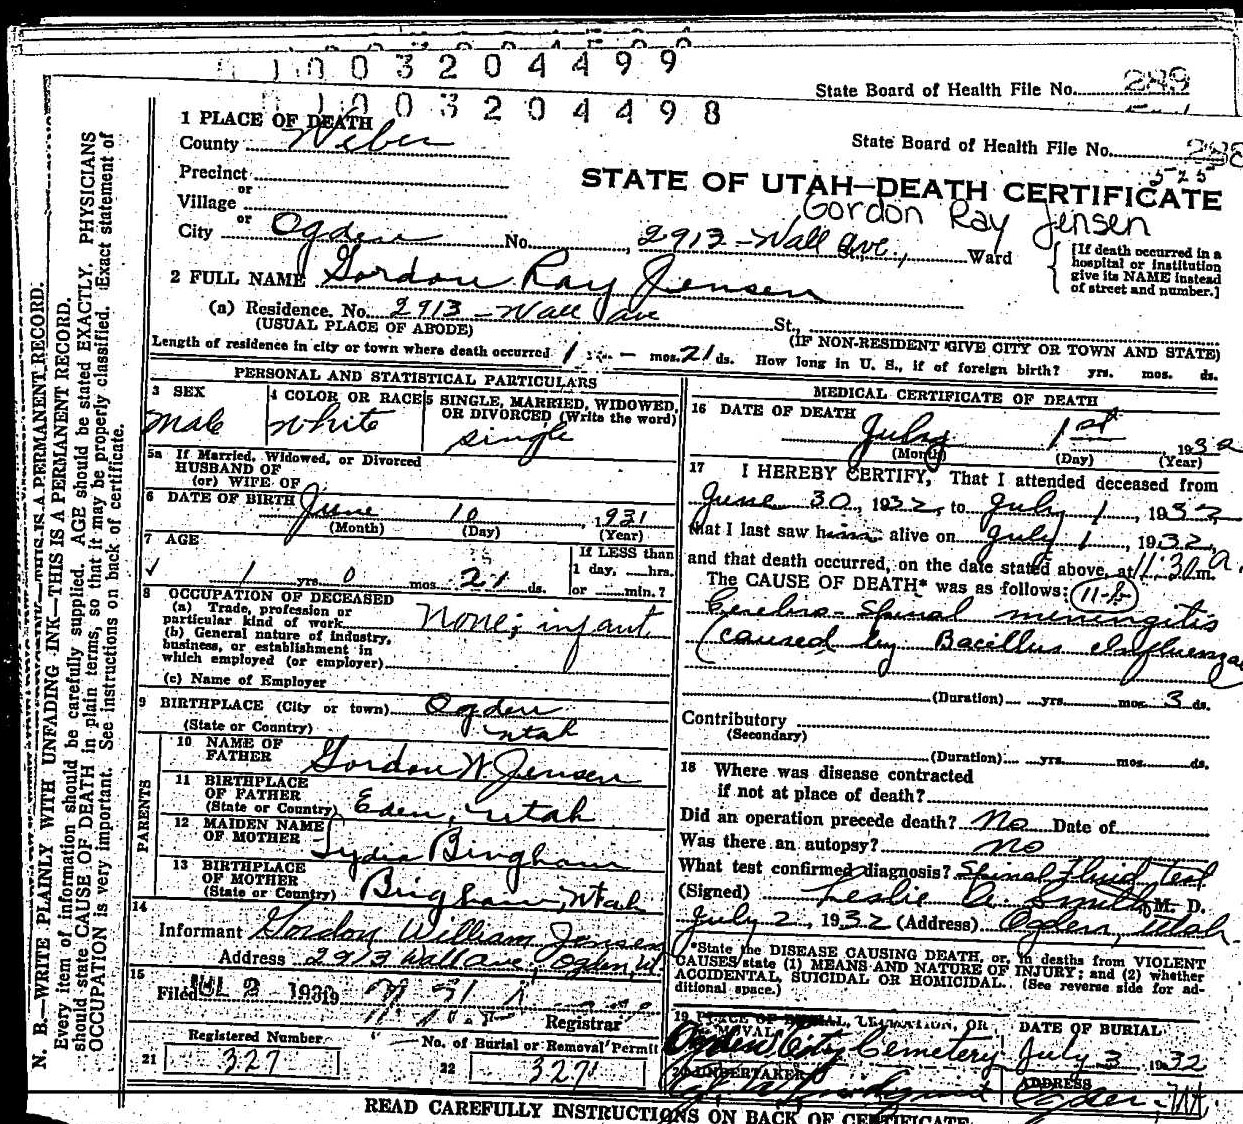 1003204499
State Board of Health File No. 289
1003204498
1 PLACE OF DEATH
State Board of Health File No.
County Weber
525
Precinct
STATE OF UTAH—DEATH CERTIFICATE
or
Village
Gordon Ray Jensen
or
City Ogden No. , 2913 - Wall Ave., Ward
[If death occurred in a hospital or institution give its NAME instead of street and number.]
2 FULL NAME Gordon Ray Jensen
(a) Residence. No. 2913 - Wall Ave St.,
(USUAL PLACE OF ABODE) (IF NON-RESIDENT GIVE CITY OR TOWN AND STATE)
Length of residence in city or town where death occurred 1 yrs. - mos. 21 ds. How long in U. S., if of foreign birth? yrs. mos. ds.
PERSONAL AND STATISTICAL PARTICULARS
3 SEX
Male
4 COLOR OR RACE
White
5 SINGLE, MARRIED, WIDOWED,
OR DIVORCED (Write the word)
single
5a If Married, Widowed, or Divorced
HUSBAND OF
(or) WIFE OF
6 DATE OF BIRTH June 10, 1931
(Month) (Day) (Year)
7 AGE
If LESS than
1 day, hrs.
1 yrs. 0 mos. 21 ds. or min.?
8 OCCUPATION OF DECEASED
(a) Trade, profession or
particular kind of work None; infant
(b) General nature of industry,
business, or establishment in
which employed (or employer)
(c) Name of Employer
9 BIRTHPLACE (City or town) Ogden
(State or Country) Utah
PARENTS
10 NAME OF
FATHER Gordon W. Jensen
11 BIRTHPLACE
OF FATHER
(State or Country) Eden, Utah
12 MAIDEN NAME
OF MOTHER Lydia Bingham
13 BIRTHPLACE
OF MOTHER
(State or Country) Bingham, Utah
14
Informant Gordon William Jensen
Address 2913 Wall Ave, Ogden Ut.
15
Filed JUL 2 193
Registrar
Registered Number
No. of Burial or Removal Permit
21 327
22 327
MEDICAL CERTIFICATE OF DEATH
16 DATE OF DEATH
July 1st 1932
(Month) (Day) (Year)
17 I HEREBY CERTIFY, That I attended deceased from
June 30, 1932, to July 1, 1932,
that I last saw him alive on July 1, 1932,
and that death occurred, on the date stated above, at 11:30 a.m.
The CAUSE OF DEATH* was as follows:
Cerebro-Spinal meningitis
(caused by Bacillus Influenzae)
(Duration) yrs. mos. 3 ds.
Contributory
(Secondary)
(Duration) yrs. mos. ds.
18 Where was disease contracted
if not at place of death?
Did an operation precede death? No Date of
Was there an autopsy? No
What test confirmed diagnosis? Spinal fluid test
(Signed) Leslie A. Smith, M. D.
July 2, 1932 (Address) Ogden, Utah.
*State the DISEASE CAUSING DEATH, or, in deaths from VIOLENT
CAUSES state (1) MEANS AND NATURE OF INJURY; and (2) whether
ACCIDENTAL, SUICIDAL OR HOMICIDAL. (See reverse side for ad-
ditional space.)
19 PLACE OF BURIAL, CREMATION, OR
REMOVAL
Ogden City Cemetery
DATE OF BURIAL
July 3 1932
20 UNDERTAKER
ADDRESS
Ogden, Ut.
READ CAREFULLY INSTRUCTIONS ON BACK OF CERTIFICATE
N. B.—WRITE PLAINLY WITH UNFADING INK—THIS IS A PERMANENT RECORD.
Every item of information should be carefully supplied. AGE should be stated EXACTLY. PHYSICIANS
should state CAUSE OF DEATH in plain terms, so that it may be properly classified. Exact statement of
OCCUPATION is very important. See instructions on back of certificate.